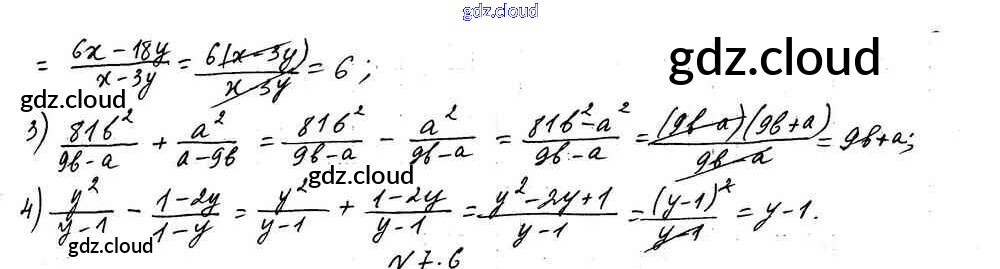 gdz.cloud
gdz.cloud
= (6x - 18y)/(x - 3y) = 6(x - 3y)/(x - 3y) = 6;
gdz.cloud
3) 81b²/(9b - a) + a²/(a - 9b) = 81b²/(9b - a) - a²/(9b - a) = (81b² - a²)/(9b - a) = (9b - a)(9b + a)/(9b - a) = 9b + a;
gdz.cloud
4) y²/(y - 1) - (1 - 2y)/(1 - y) = y²/(y - 1) + (1 - 2y)/(y - 1) = (y² - 2y + 1)/(y - 1) = (y - 1)²/(y - 1) = y - 1.
gdz.cloud
N 7.6